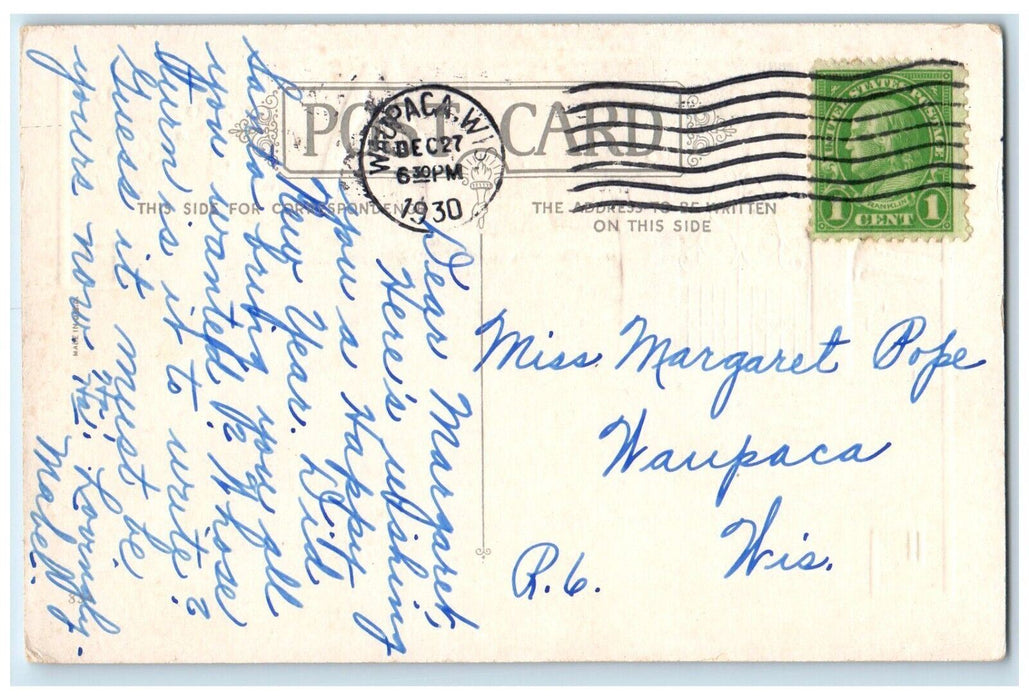 POST CARD
WAUPACA, WIS
DEC 27
6 30 PM
1930
UNITED STATES POSTAGE
FRANKLIN
1 CENT 1
THIS SIDE FOR CORRESPONDENCE
THE ADDRESS TO BE WRITTEN
ON THIS SIDE
MADE IN
Dear Margaret,
Here's wishing
you a Happy
New Year. Did
Santa bring you all
you wanted? Whose
turn is it to write?
Guess it must be
yours now. Ha! Ha! Lovingly-
Mabel.
Miss Margaret Pope
Waupaca
Wis.
R.6.